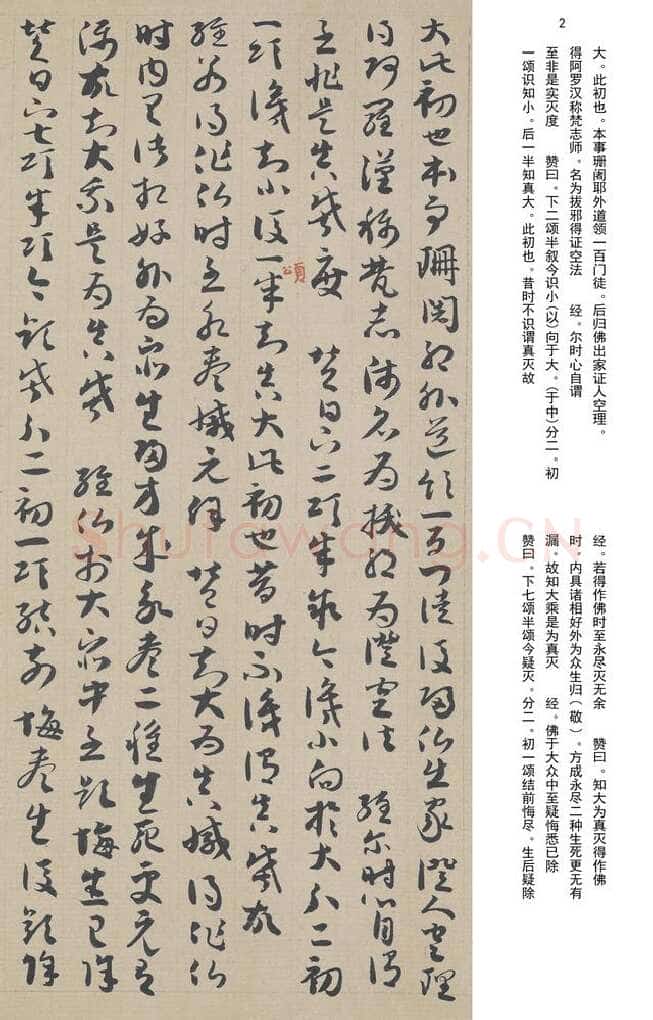 2
大。此初也。本事珊阇耶外道领一百门徒。后归佛出家证人空理。
得阿罗汉称梵志师。名为拔邪得证空法　经。尔时心自谓
至非是实灭度　赞曰。下二颂半叙今识小(以)向于大。(于中)分二。初
一颂识知小。后一半知真大。此初也。昔时不识谓真灭故
经。若得作佛时至永尽灭无余　赞曰。知大为真灭得作佛
时。内具诸相好外为众生归(敬)。方成永尽二种生死更无有
漏。故知大乘是为真灭　经。佛于大众中至疑悔悉已除
赞曰。下七颂半颂今疑灭。分二。初一颂结前悔尽。生后疑除
大此初也本事珊闍耶外道领一百门徒後归仏出家證人空理
得阿羅漢称梵志师名为拔邪为證空法　經尔时心自谓
至非是真灭度　赞曰下二项半叙今識小向於大分二初
一项識知小後一半知真大此初也昔時不識谓真灭故
颂
經若得作仏时至永尽灭无馀　赞曰知大为真灭得作仏
时内具诸相好外为众生归方成永尽二種生死更无有
漏故知大乘是为真灭　經仏於大众中至疑悔悉已除
赞曰下七项半项今疑灭分二初一项结前悔尽生後疑除
Shufawang.CN